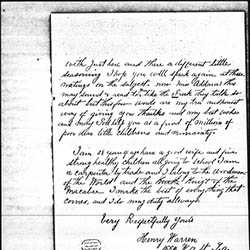 with just here and there a different little
seasoning I hope you will speak again at these
meetings on the subject. now Mis Addams this
may sound & read to, like the Greek they talk so
about but this few words are my
way of giving you thanks and my best wishes
and may God help you as a friend of millions of
poor little childrens and humanity.
I am 38 years of age have a good wife and five
strong healthy children all going to school I am
a carpenter by trade and I belong to the Woodmen
of the World and the Knights of the
Maccabees. I make the best of everything that
comes, and I do my duty allways.
Very Respectfully Yours
Henry Warren